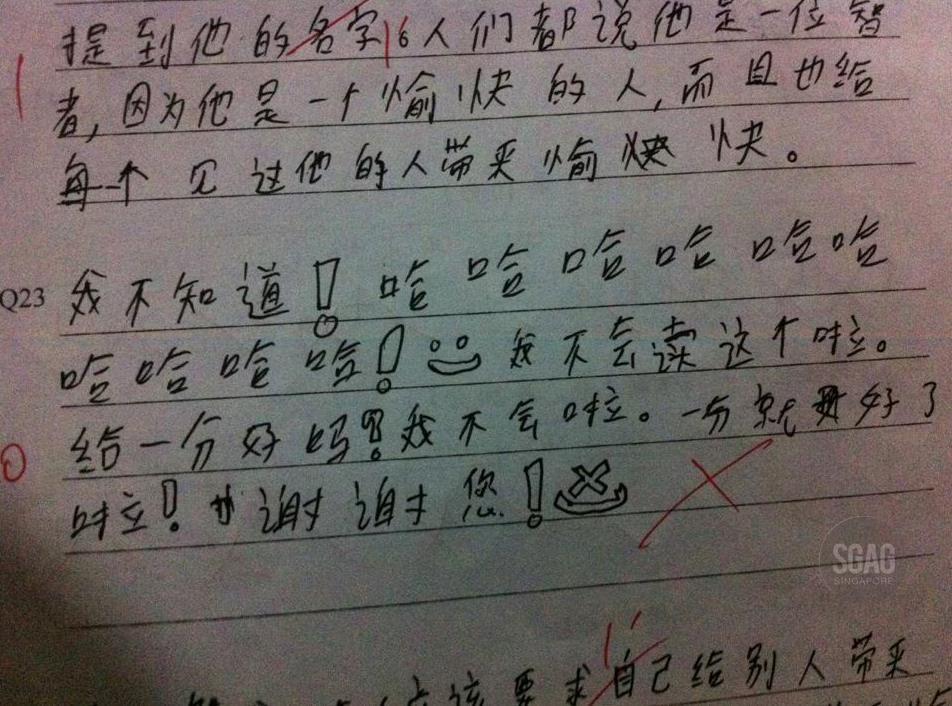 提到他的名字16人们都说他是一位智
者,因为他是一个愉快的人,而且也给
每个见过他的人带来愉快。
Q23 我不知道!哈哈哈哈哈哈
哈哈哈哈!我不会读这个啦。
0 给一分好吗?!我不会啦。一分就好了
啦!谢谢您!
SGAG
SINGAPORE
该要求自己给别人带来